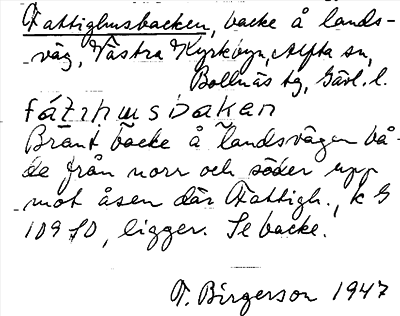 Fattighusbacken, backe å lands-
väg, Västra Kyrkbyn, Alfta sn,
Bollnäs tg, Gävl. l.
Brant backe å landsvägen bå-
de från norr och söder upp
mot åsen där Fattigh., k G
109 f0, ligger. Se backe.
F. Birgerson 1947